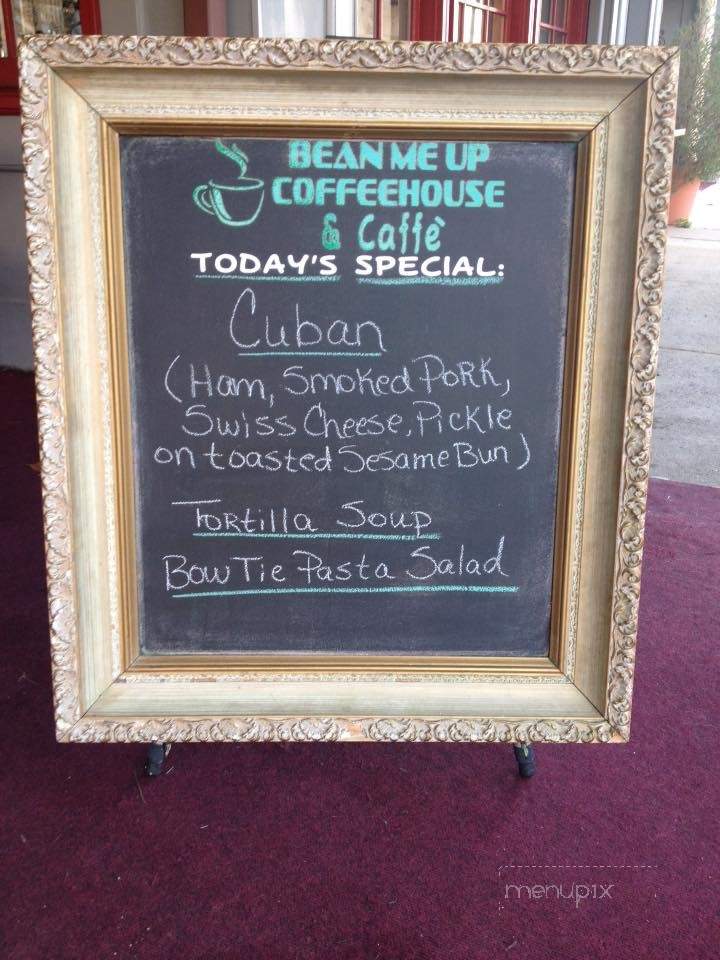 BEAN ME UP
COFFEEHOUSE
& Caffè
TODAY'S SPECIAL:
Cuban
(Ham, Smoked Pork,
Swiss Cheese, Pickle
on toasted Sesame Bun)
Tortilla Soup
Bow Tie Pasta Salad
menupix